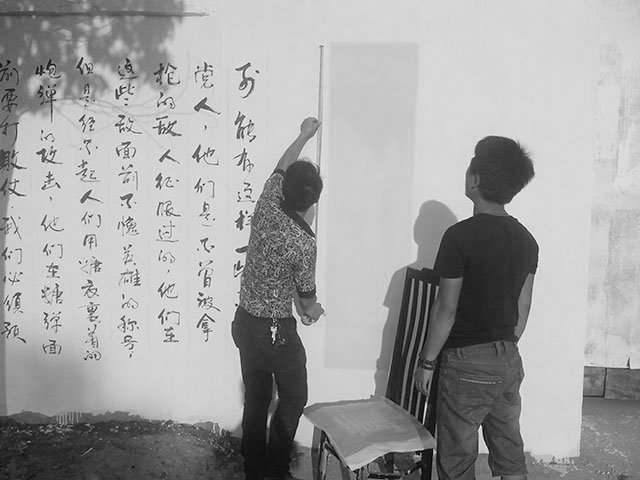 可能有这样一些
党人，他们是不曾被拿
枪的敌人征服过的，他们在
这些敌面前不愧英雄的称号，
但是经不起人们用糖衣裹着的
炮弹的攻击，他们在糖弹面
前要打败仗我们必须预